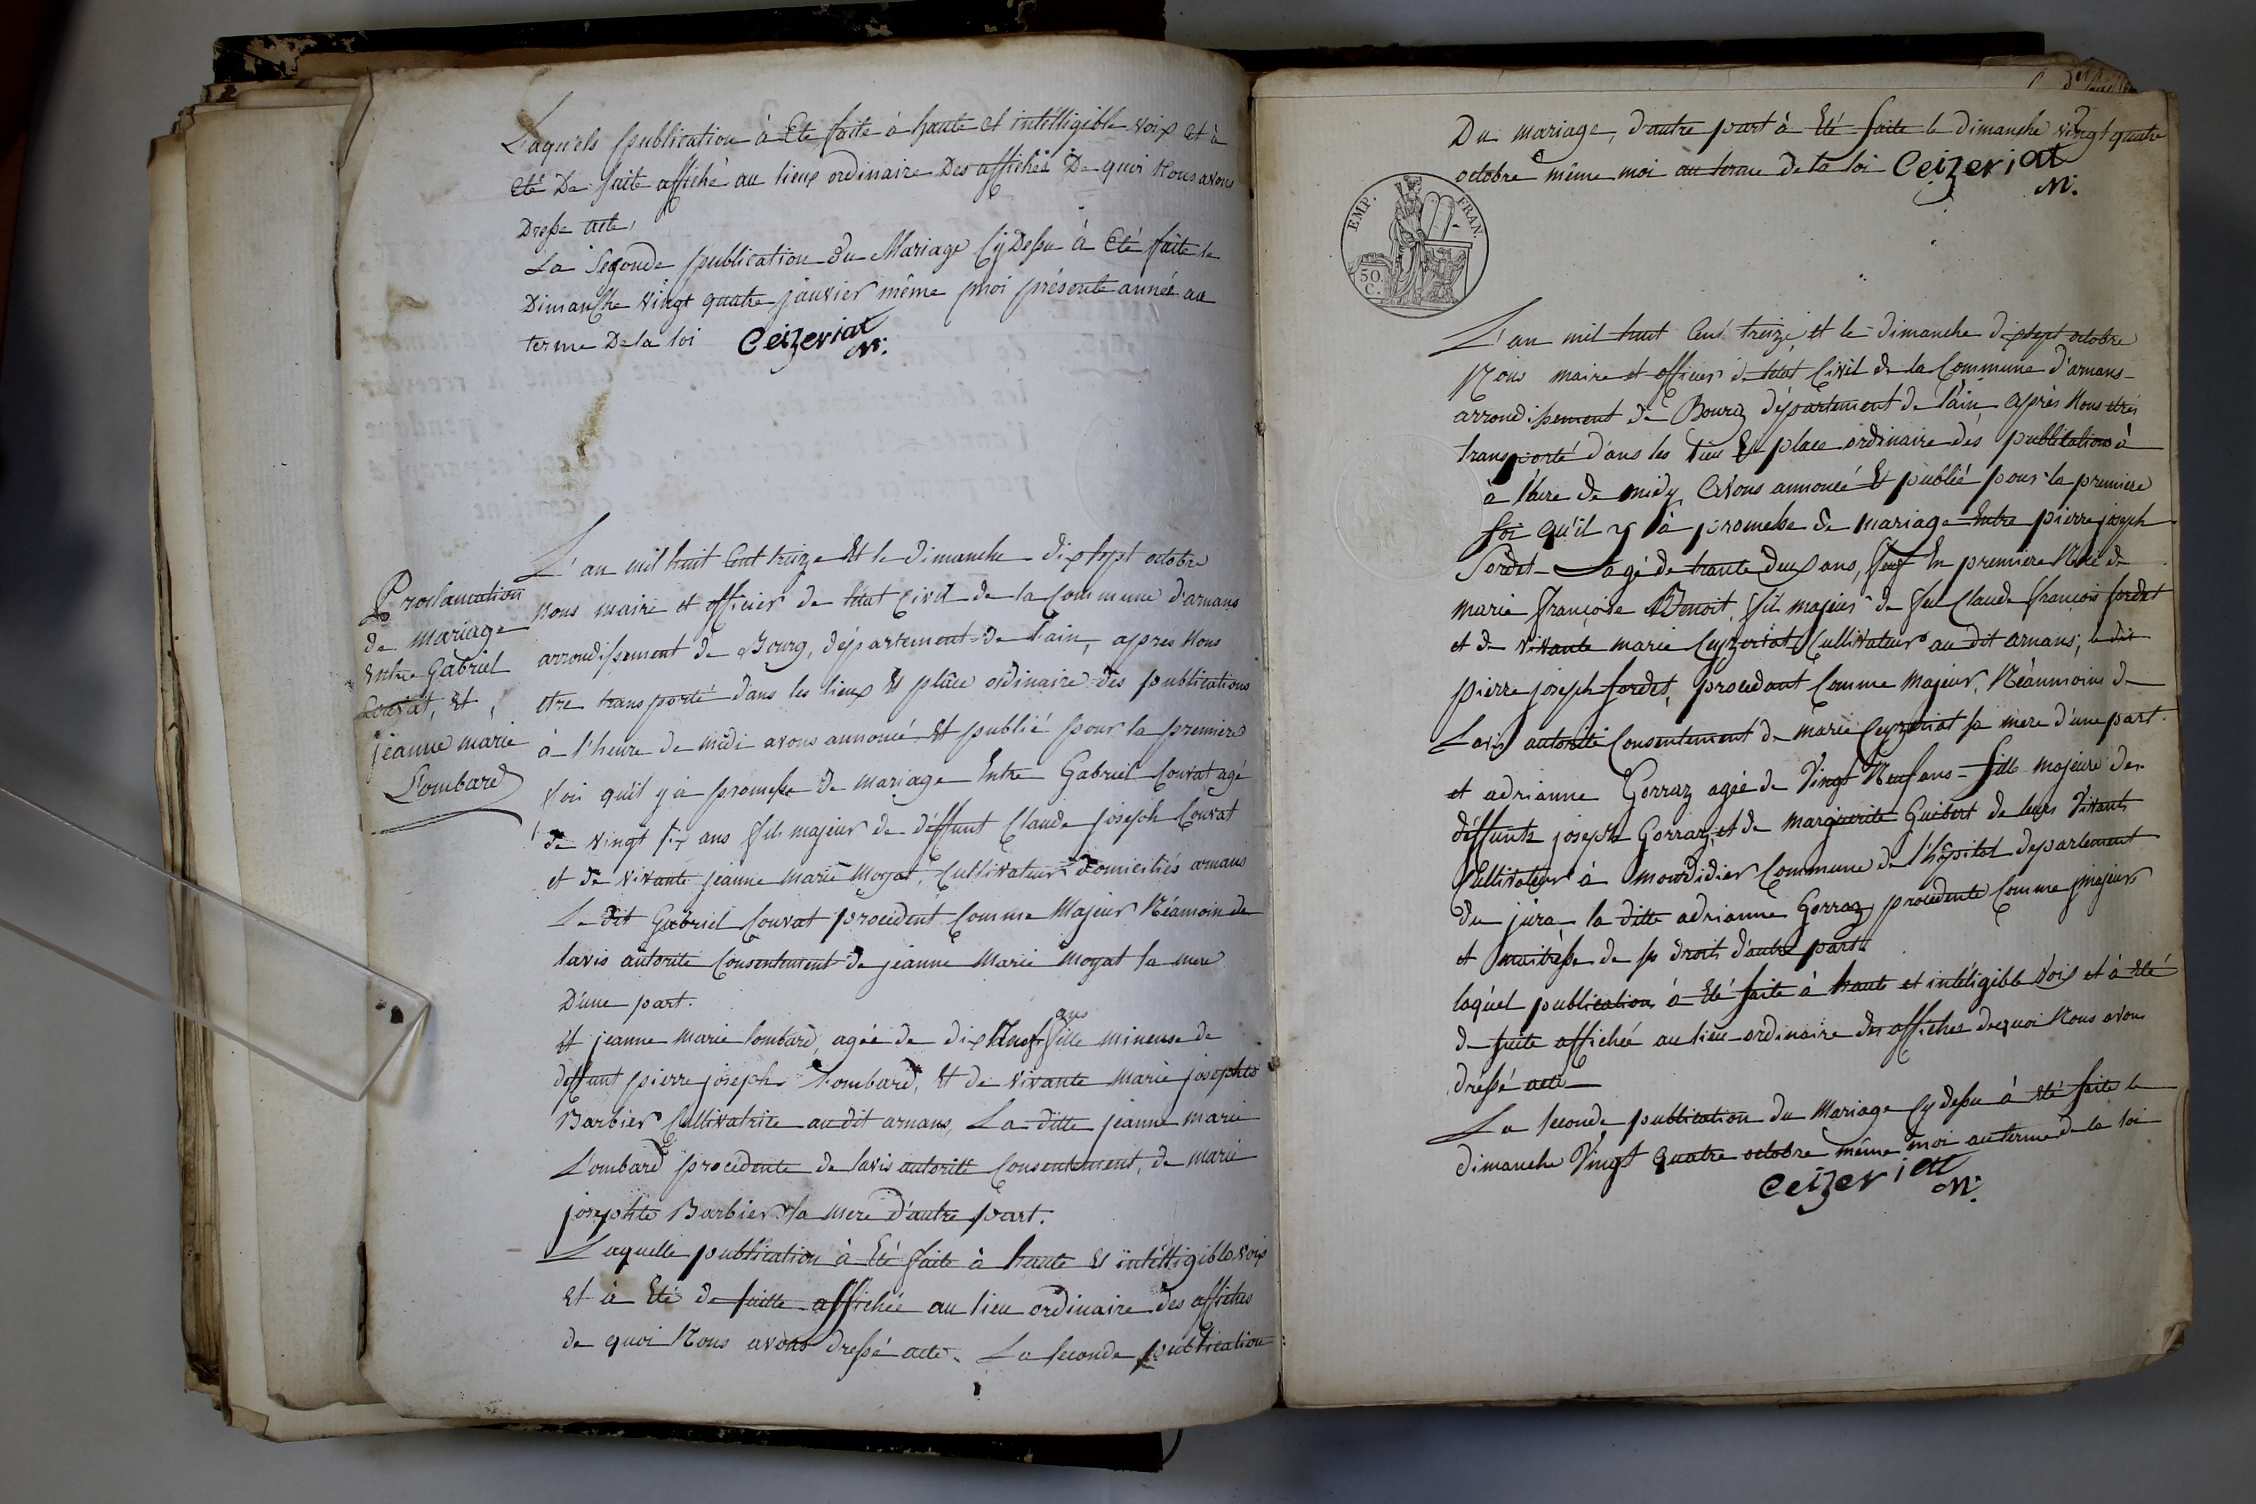 Laquels publication à Eté faite à haute et intélligible voix et à
été De suite affiché au lieux ordinaire Des affichés De quoi Nous avons
Dresse acte,
La Seconde publication du Mariage Cy Dessu à Eté faite le
Dimanche vingt quatre janvier même moi présente année au
terme De la loi Ceizeriat
M.
L'an mil huit Cent treize Et le dimanche dix sept octobre
Proclamation
de mariage
Entre Gabriel
Couvat, Et
jeanne marie
Lombard
Nous maire et officier de létat civil de la Commune d'arnans
arrondissement de Bourg, département de l'ain, apres Nous
etre transporté dans les lieux Et place ordinaire des publications
à l'heure de midi avons annoncé Et publié pour la premiere
foi qu'il y à promesse de mariage Entre Gabriel Couvat agé
de vingt six ans fils majeur de déffunt Claude joseph Couvat
et de vivante jeanne marie Moyat, Cultivateur domiciliés arnans
Le dit Gabriel Couvat procedent Comme Majeur Néamoin de
lavis autorite Consentement de jeanne Marie moyat sa mere
D'une part.
Et jeanne marie lombard, agée de dix Neuf ans fille mineuse de
deffunt pierre joseph Lombard, Et de vivante marie josephte
Barbier Cultivatrice au dit arnans, La ditte jeanne marie
Lombard procedente de lavis autorité Consentement, de marie
josephte Barbier sa mere d'autre part.
Laquelle publication à Eté faite à haute Et intélligible voix
Et à Eté de suitte affichée au lieu ordinaire des affiches
de quoi Nous avons dressé acte. La seconde publication
Du mariage, d'autre part à Eté faite le dimanche vingt quatre
octobre même moi au terme De la loi Ceizeriat
M.
EMP. FRAN.
50
C.
L'an mil huit Cent treize et le dimanche dix sept octobre
Nous maire et officier de létat Civil de la Commune d'arnans
arrondissement de Bourg département de l'ain après Nous etres
transporté d'ans les lieu Et place ordinaire des publications à
à l'hure de midy Avons annoncé Et publié pour la premiere
foi qu'il y à promesse de mariage Entre pierre joseph
Sordet agé de trante deux ans, veuf En premiere Noce de
marie françoise Benoit, fil majeur de feu Claude françois sordet
et de vivante marie Ceyzeriat Cultivateur au dit arnans; le dit
pierre joseph sordet, procedant Comme Majeur, Néanmoins de
Lavis autorité Consentement de marie Ceyzeriat sa mere d'une part.
et adrianne Gorraz agée de Vingt Neuf ans fille majeure des
déffunts joseph Gorraz, et de marguerite Guibert de leurs Vivants
Cultivateur à mondidier Commune de l'hôpital departement
du jura, la ditte adrianne Gorraz procedente Comme majeure
et maitresse de ses droits d'autre part.
laquel publication à Eté faite à haute et intéligible Voix et à Eté
de suite affichée au lieu ordinaire des affiches dequoi Nous avons
dréssé acte
La seconde publication du Mariage Cy dessu à Eté faite le
dimanche Vingt quatre octobre même moi au terme de la loi
Ceizeriat
M.